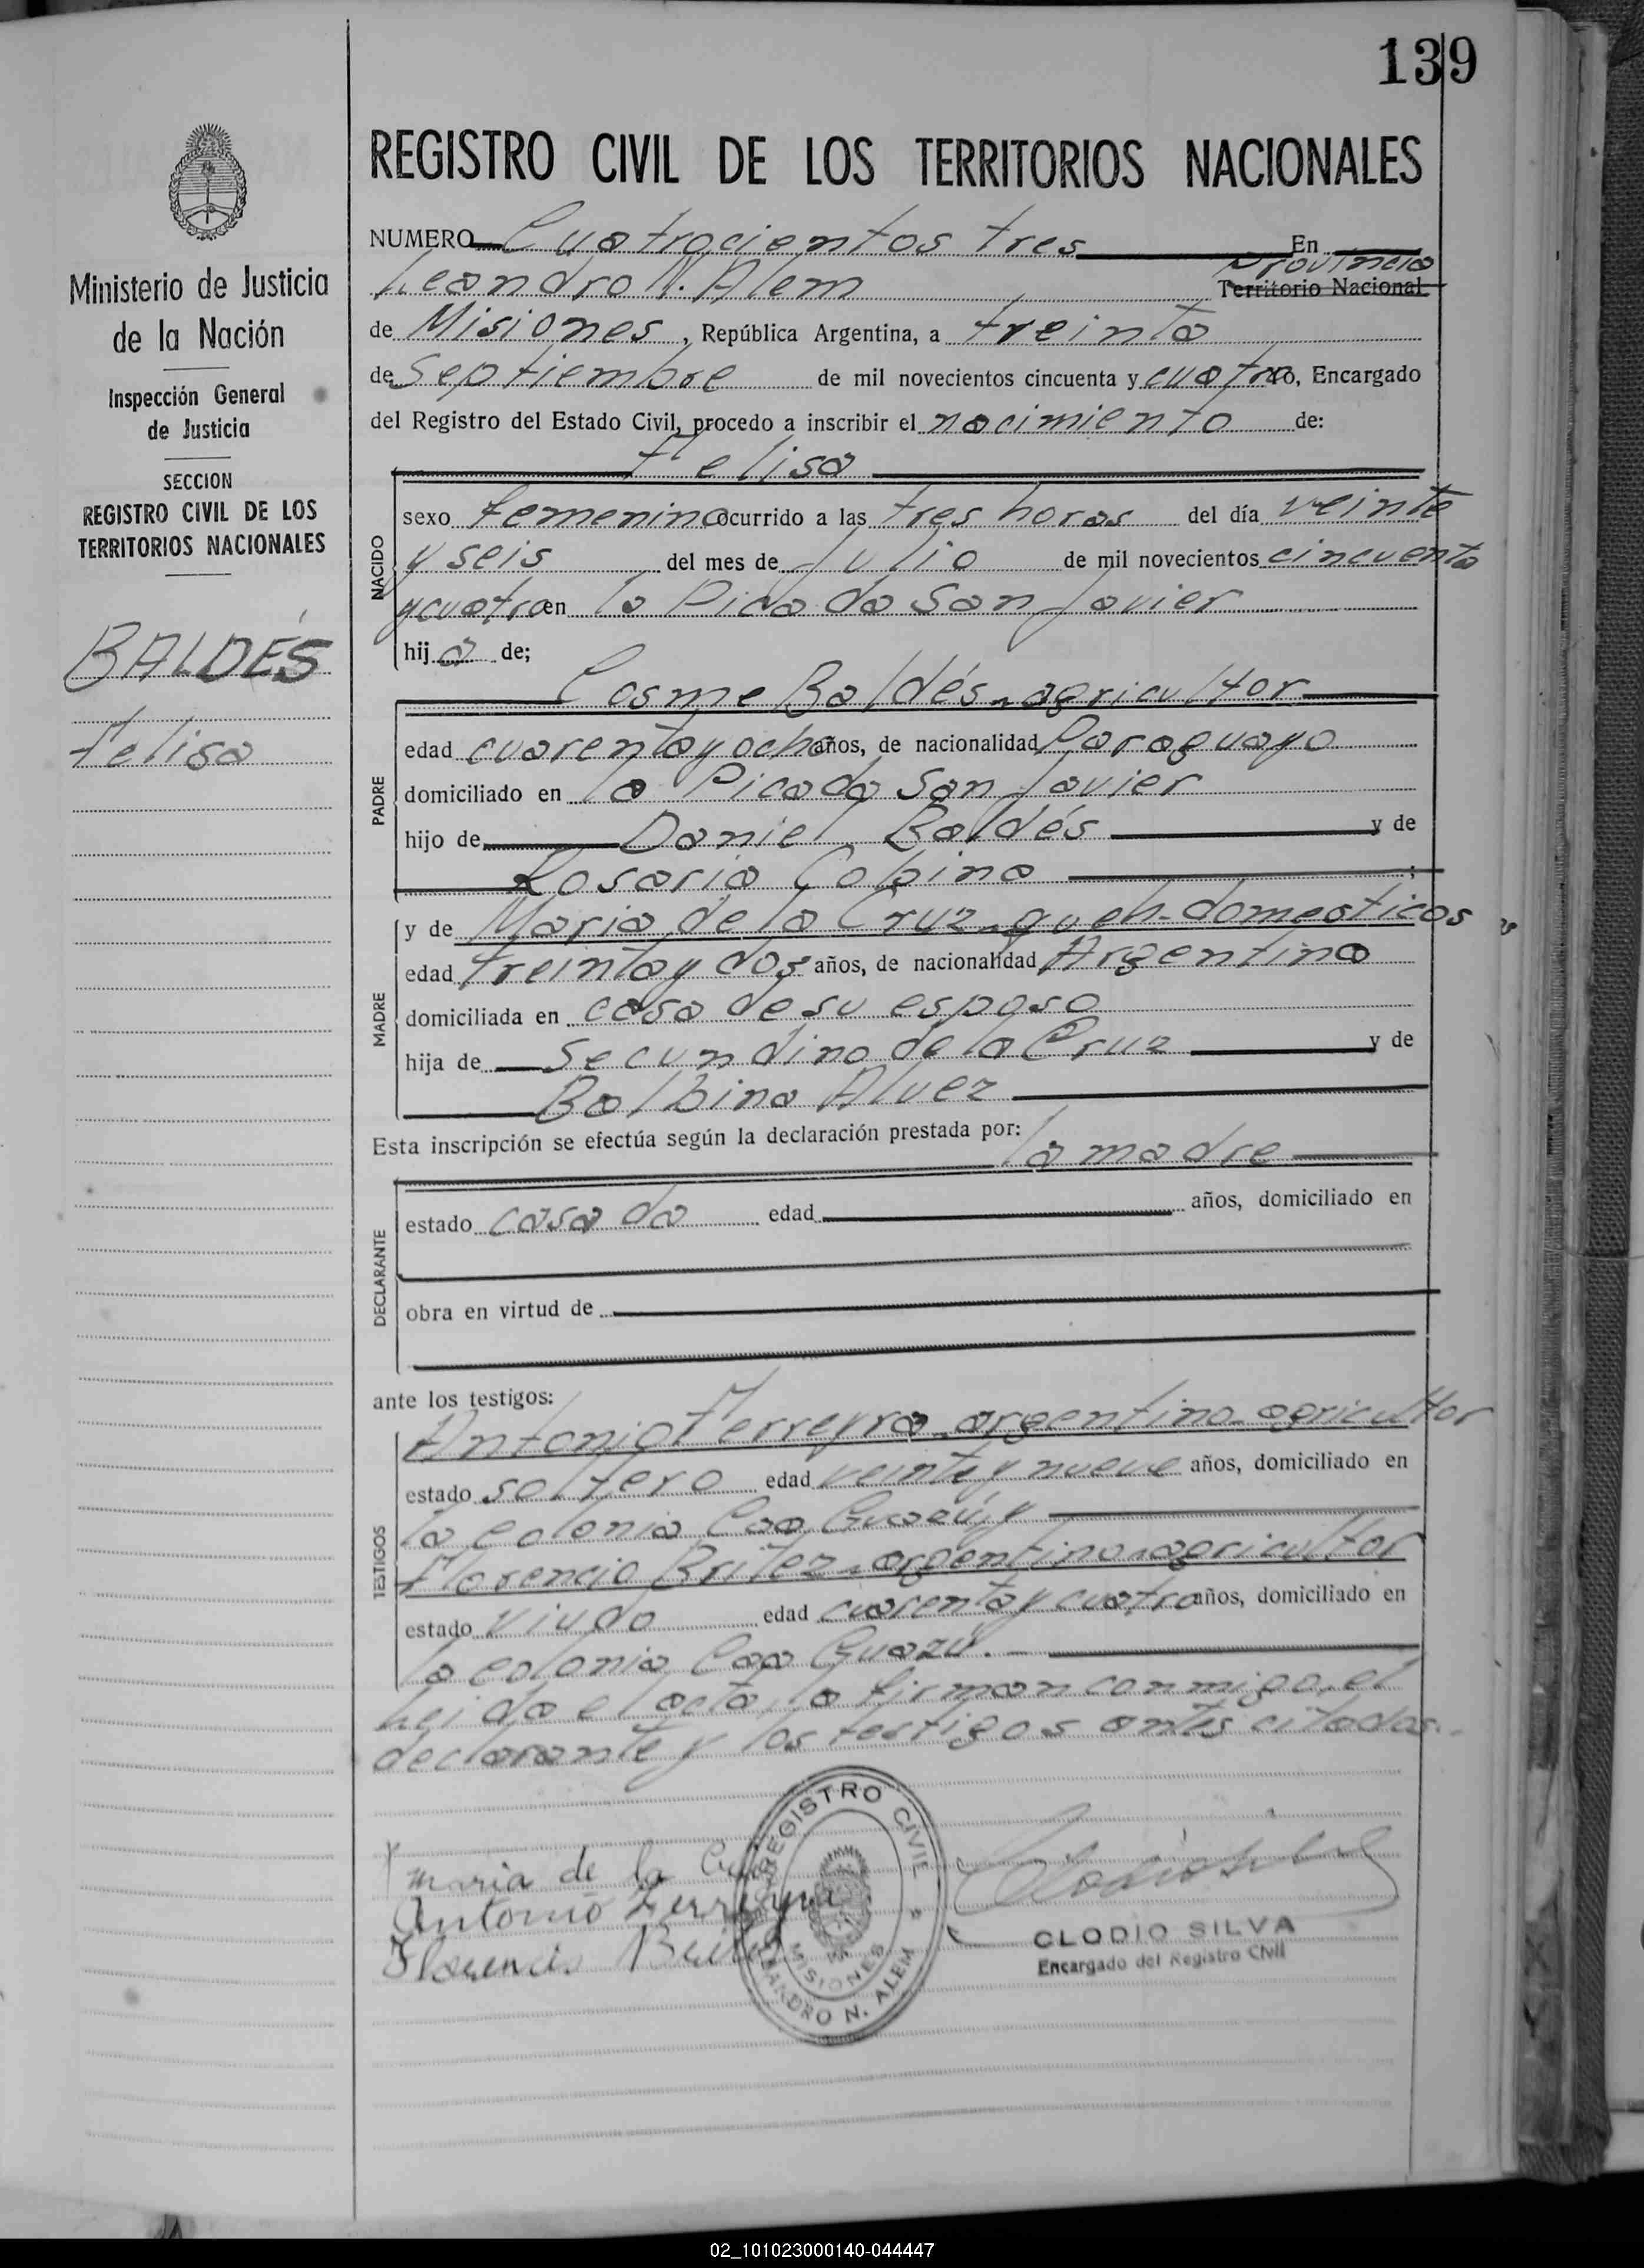 139
REGISTRO CIVIL DE LOS TERRITORIOS NACIONALES
Ministerio de Justicia
de la Nación
Inspección General
de Justicia
SECCION
REGISTRO CIVIL DE LOS
TERRITORIOS NACIONALES
BALDÉS
Felisa
NUMERO Cuatrocientos tres En
Leandro N. Alem Provincia Territorio Nacional
de Misiones, República Argentina, a treinta
de Septiembre de mil novecientos cincuenta y cuatro, Encargado
del Registro del Estado Civil, procedo a inscribir el nacimiento de:
Felisa
NACIDO
sexo femenino ocurrido a las tres horas del día veinte
y seis del mes de Julio de mil novecientos cincuenta
y cuatro en la Picada San Javier
hija de;
Cosme Baldés - agricultor
PADRE
edad cuarenta y ocho años, de nacionalidad Paraguayo
domiciliado en la Picada San Javier
hijo de Daniel Baldés y de
Rosario
MADRE
y de Maria de la Cruz - q. eh. domesticos
edad treinta y dos años, de nacionalidad Argentina
domiciliada en casa de su esposo
hija de Secundino de la Cruz y de
Balbina Alvez
Esta inscripción se efectúa según la declaración prestada por: la madre
DECLARANTE
estado casada edad años, domiciliado en
obra en virtud de
ante los testigos:
TESTIGOS
Antonio Ferreyra - argentino - agricultor
estado soltero edad veinte y nueve años, domiciliado en
la colonia Caa Guazú, y
Florencio Britez - argentino - agricultor
estado viudo edad cuarenta y cuatro años, domiciliado en
la colonia Caa Guazú.
Leida el acta, la firman conmigo, el
declarante y los testigos antes citados.
Maria de la Cruz
Antonio Ferreyra
Florencio Britez
REGISTRO CIVIL
MISIONES
LEANDRO N. ALEM
CLODIO SILVA
Encargado del Registro Civil
02_101023000140-044447